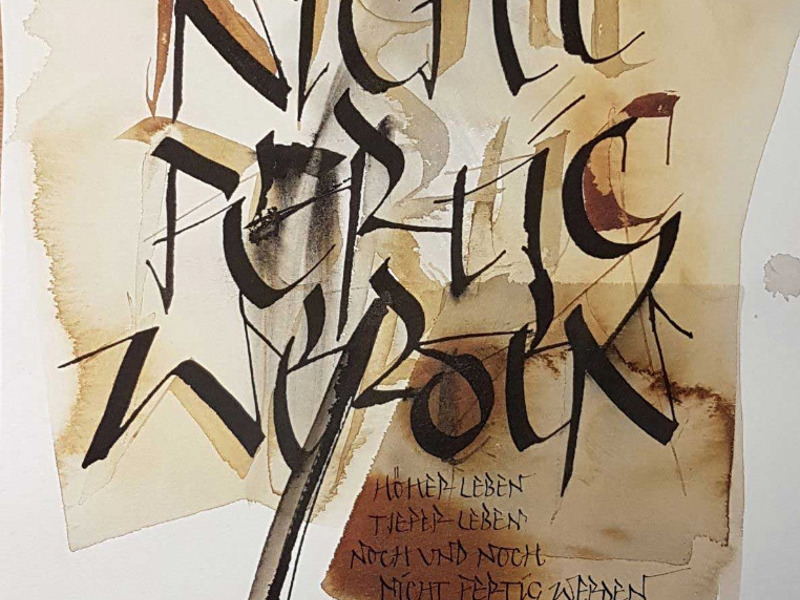 NICHT
FERTIG
WERDEN
HÖHER LEBEN
TIEFER LEBEN
NOCH UND NOCH
NICHT FERTIG WERDEN